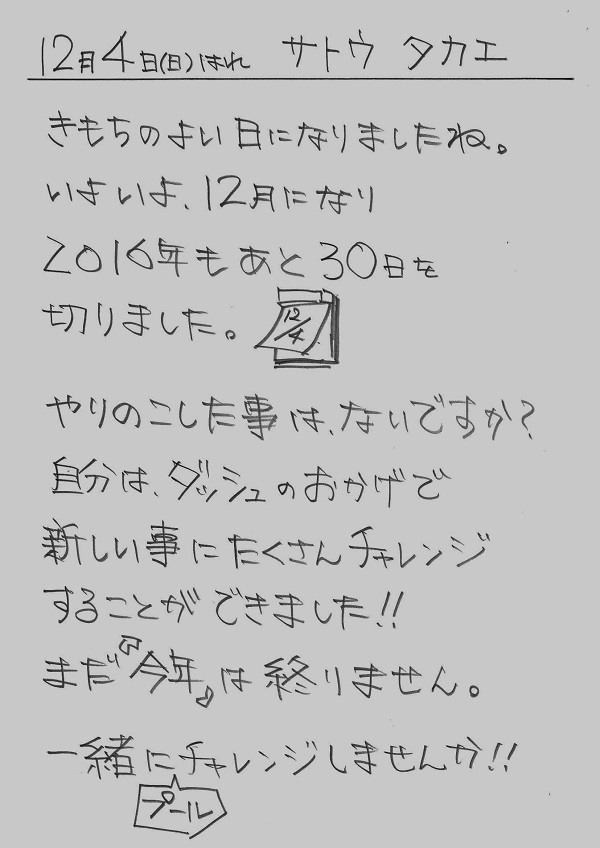 12月4日(日)はれ サトウ タカエ
きもちのよい日になりましたね。
いよいよ、12月になり
2016年もあと30日を
切りました。
12/4
やりのこした事は、ないですか?
自分は、ダッシュのおかげで
新しい事にたくさんチャレンジ
することができました!!
まだ『今年』は終りません。
一緒にチャレンジしませんか!!
プール